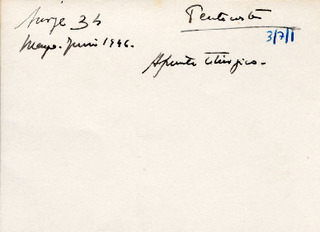 Surge 34
Mayo-Junio 1946.
Pentecostés
3/7/1
Apunte litúrgico.-